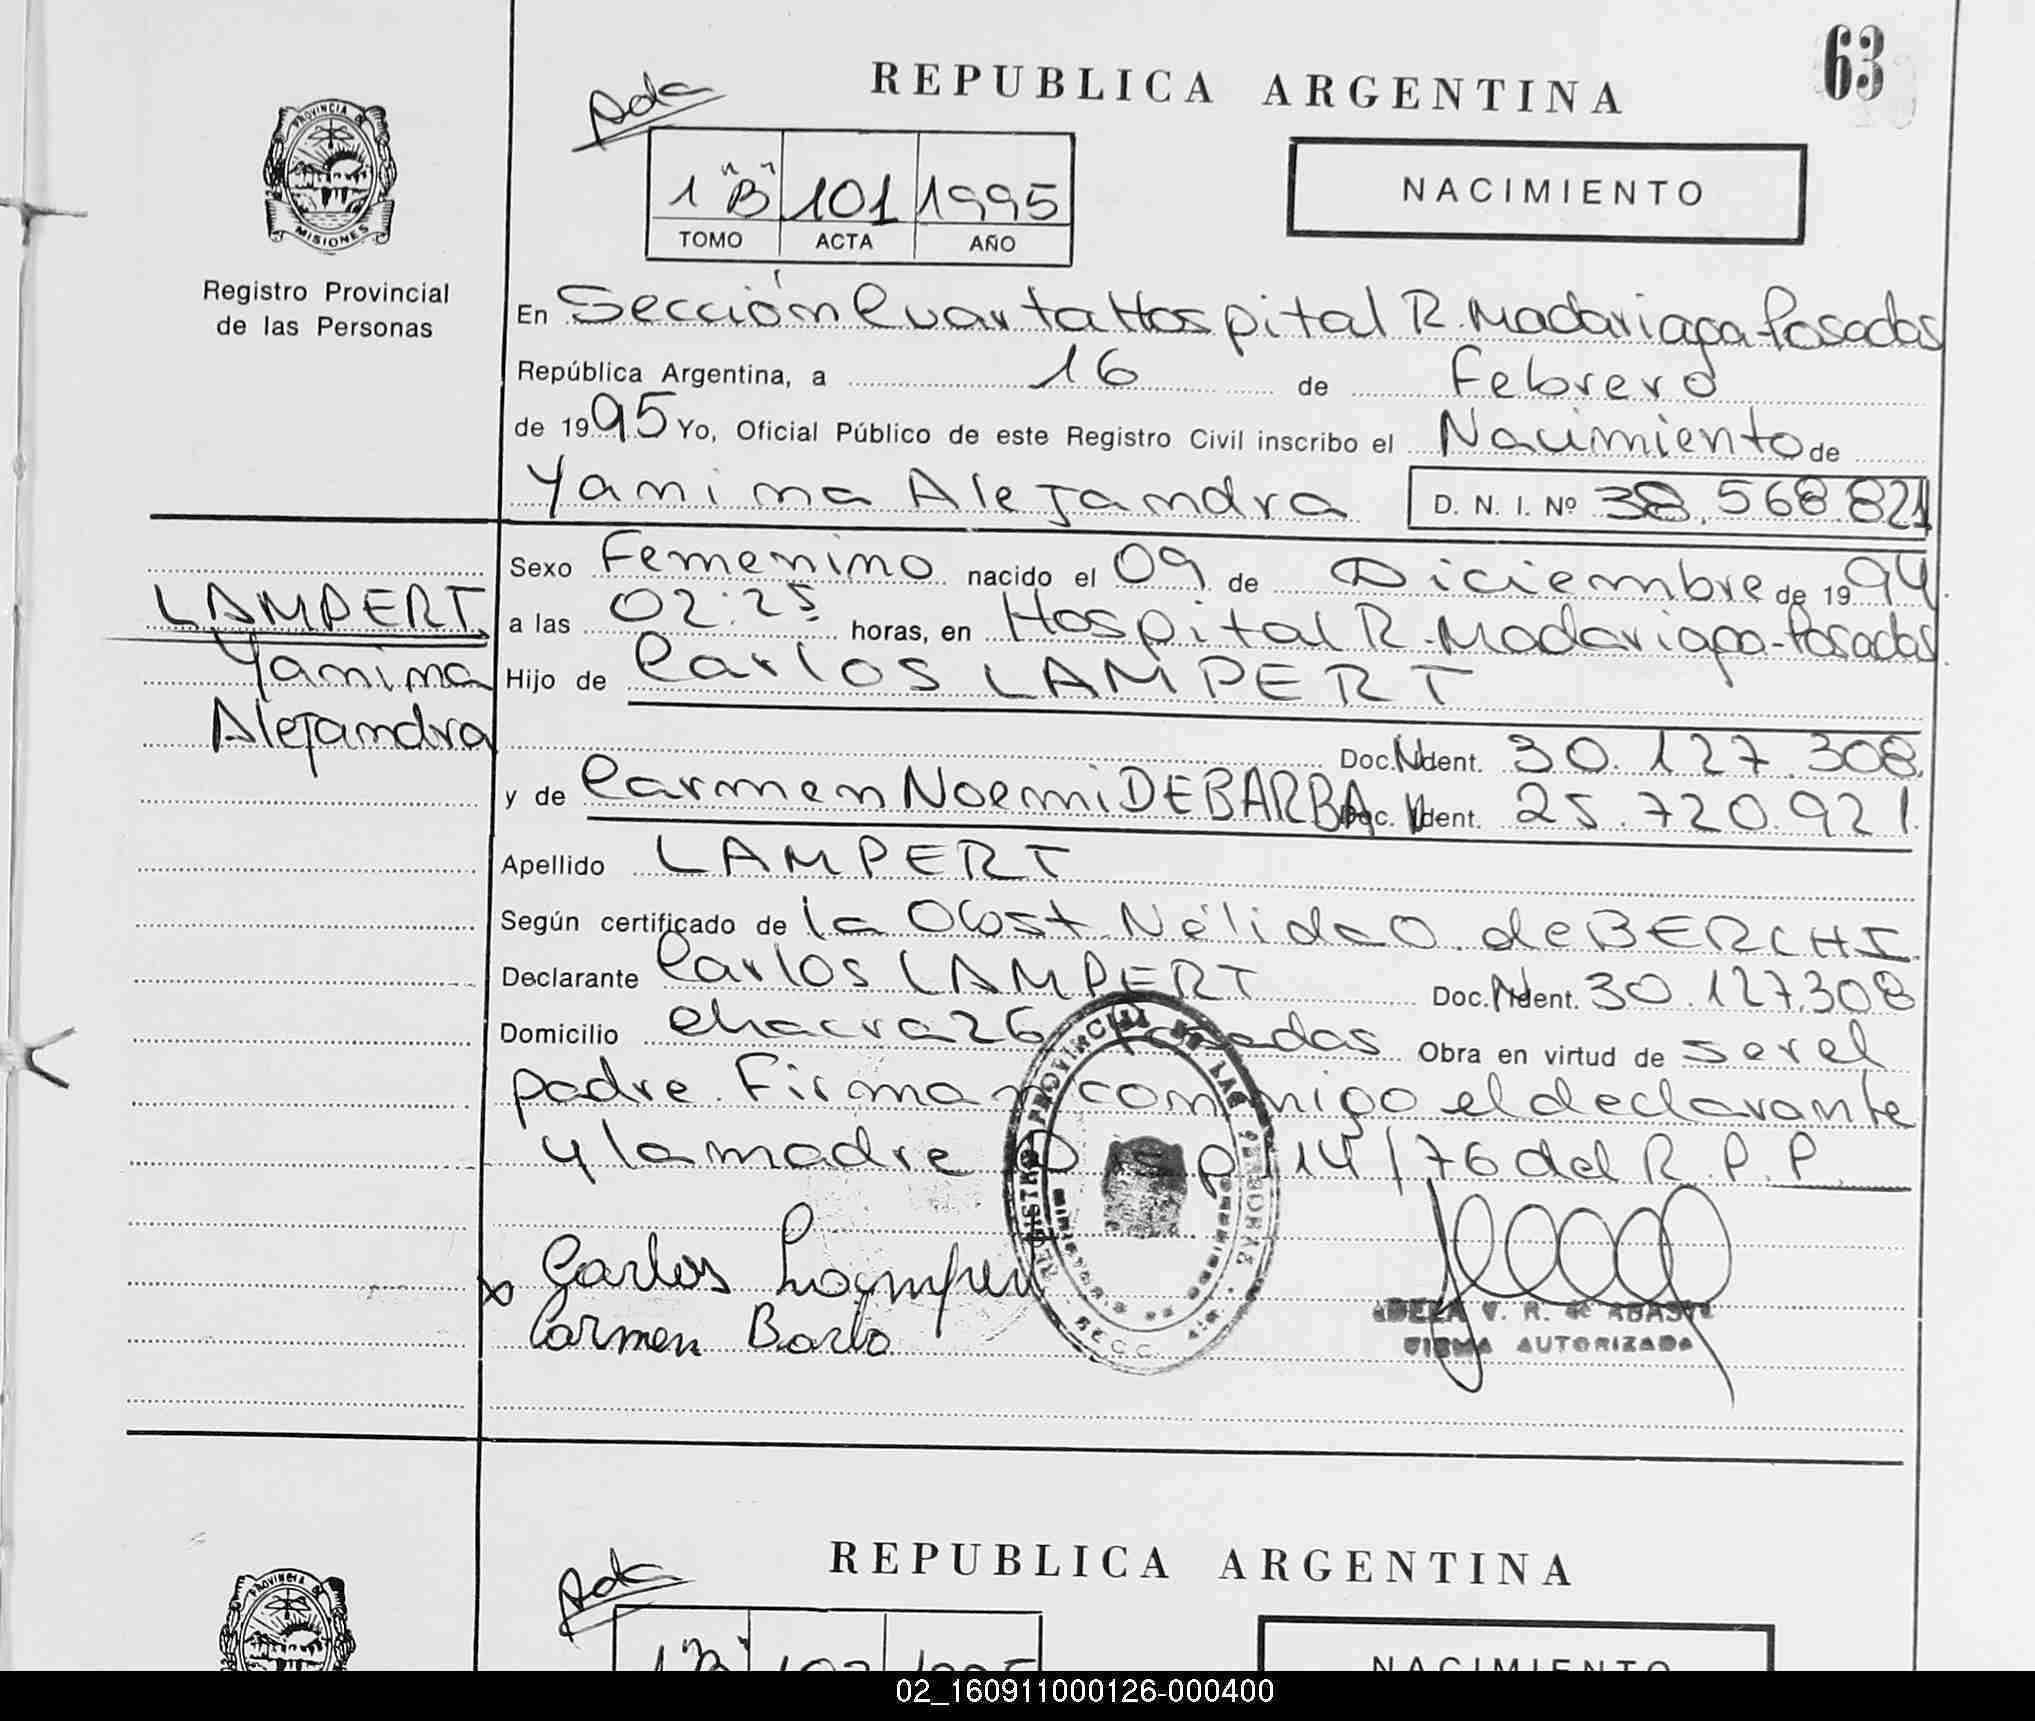 63
REPUBLICA ARGENTINA
Ada
PROVINCIA DE
MISIONES
Registro Provincial
de las Personas
1 "B" 101 1995
TOMO ACTA AÑO
NACIMIENTO
En Sección Cuarta Hospital R. Madariaga-Posadas
República Argentina, a 16 de Febrero
de 1995 Yo, Oficial Público de este Registro Civil inscribo el Nacimiento de
Yanina Alejandra D. N. I. Nº 38.568.821
Sexo Femenino nacido el 09 de Diciembre de 1994
a las 02:25 horas, en Hospital R. Madariaga-Posadas
Hijo de Carlos LAMPERT
Doc. N Ident. 30.127.308
y de Carmen Noemi DEBARBA Doc. Ident. 25.720.921
LAMPERT
Yanina
Alejandra
Apellido LAMPERT
Según certificado de la Obst. Nélida O. de BERCHI
Declarante Carlos LAMPERT Doc. N Ident. 30.127.308
Domicilio chacra 26 Posadas Obra en virtud de ser el
padre. Firman conmigo el declarante
y la madre 114/76 del R.P.P.
Carlos Lampert
Carmen Barba
REGISTRO PROVINCIAL DE LAS PERSONAS
ADELA V. R. de ABASTE
FIRMA AUTORIZADA
REPUBLICA ARGENTINA
Ada
PROVINCIA DE
1 "B" 102 1995
NACIMIENTO
02_160911000126-000400